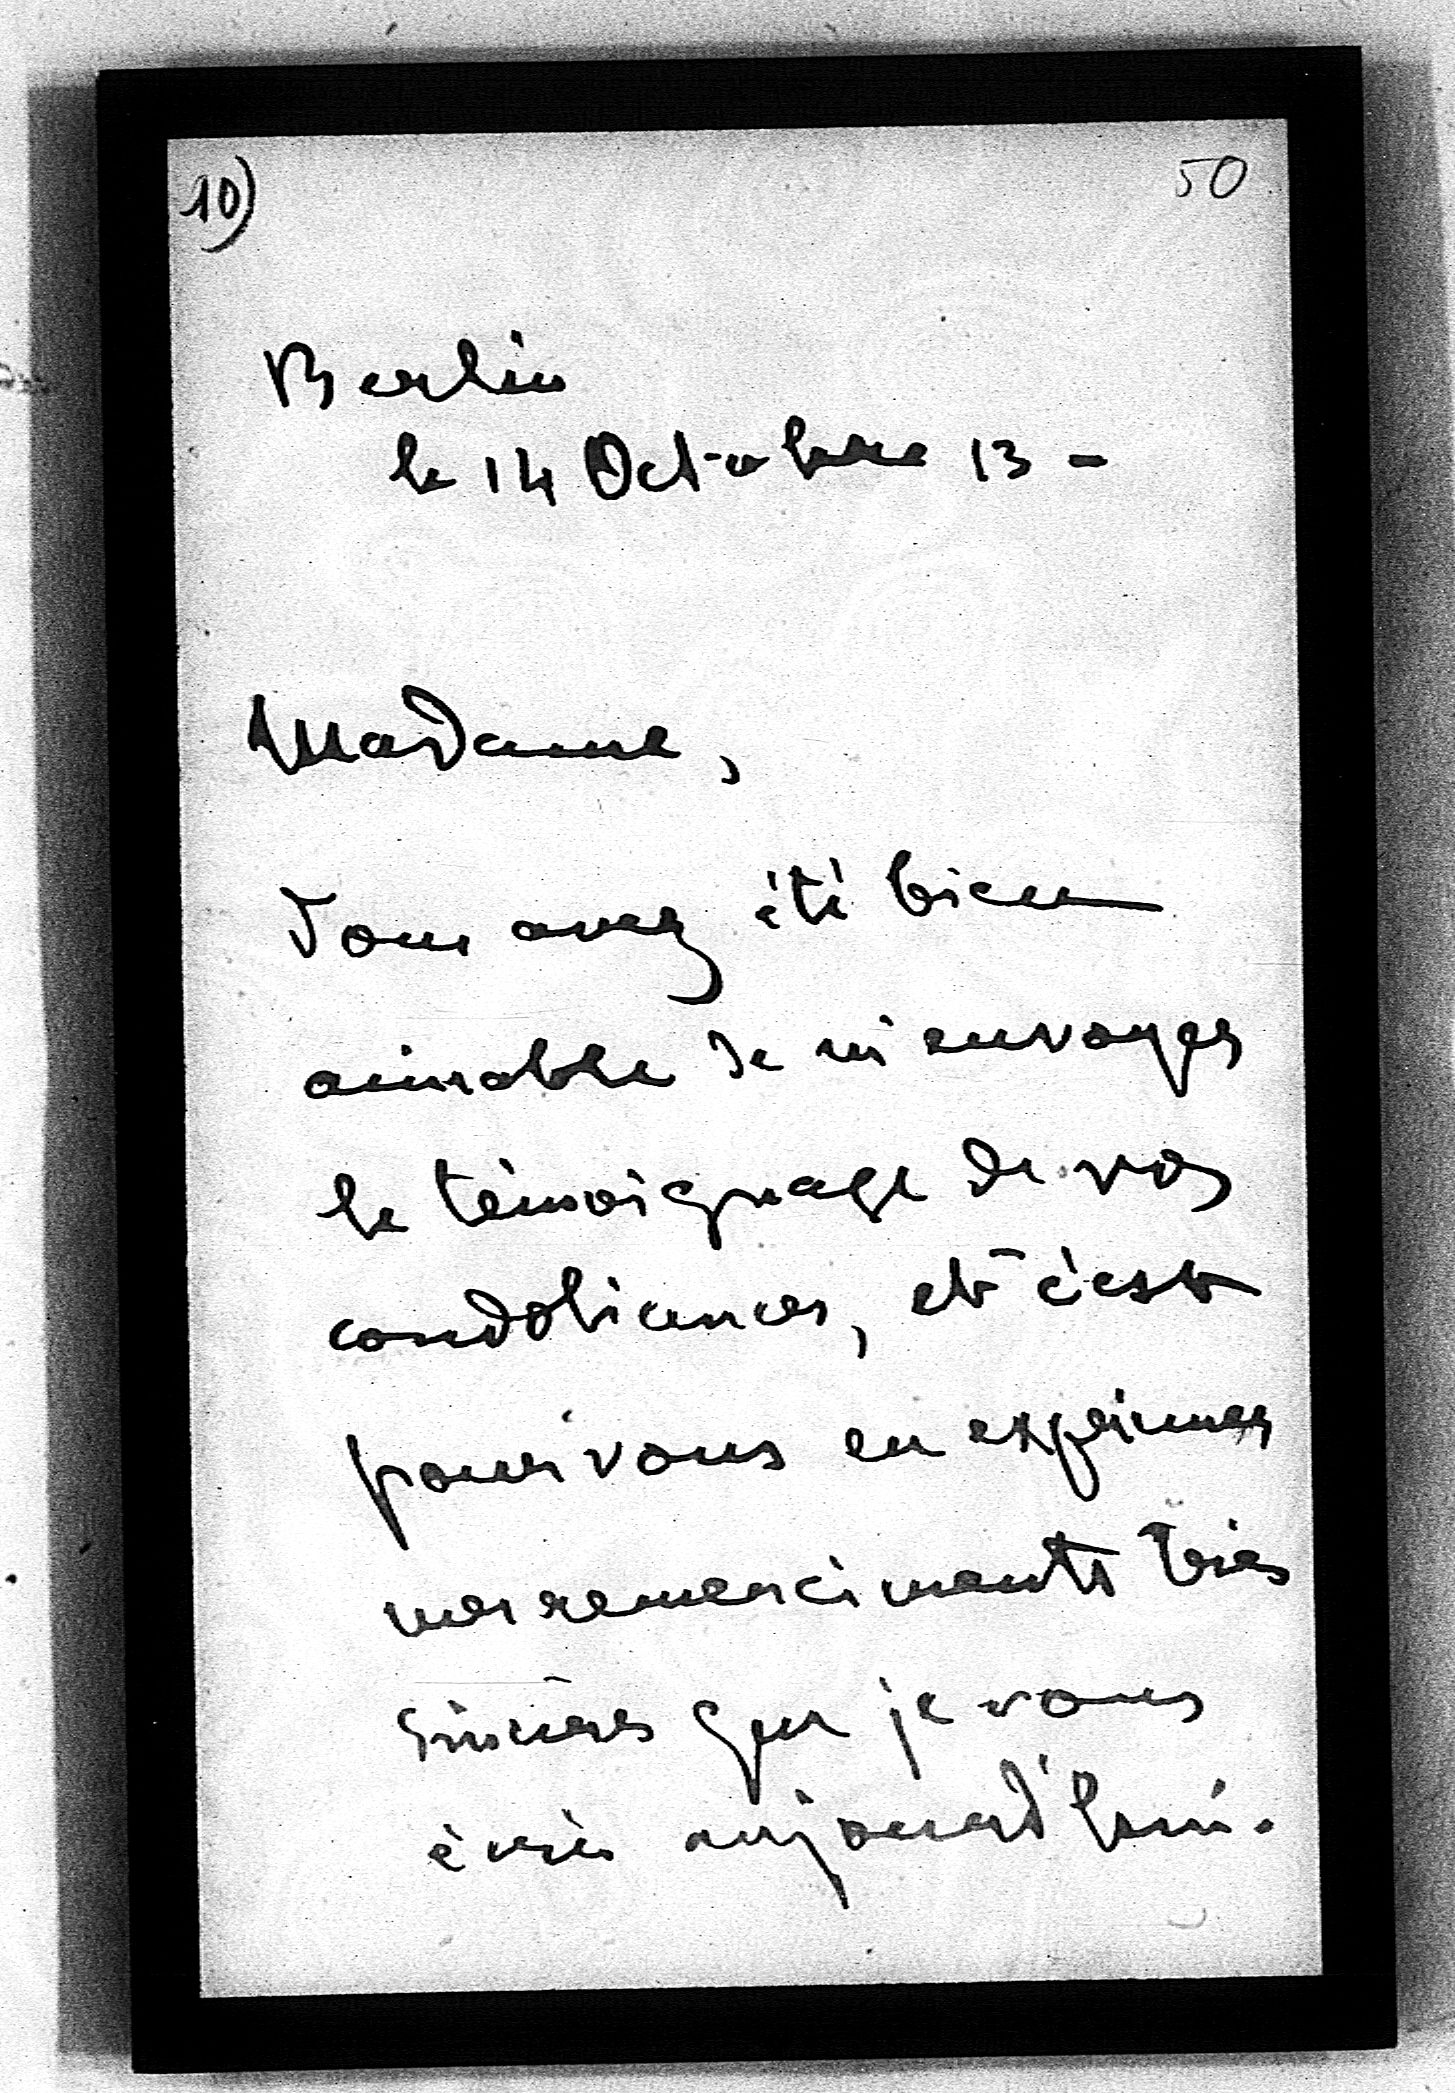 10)
50
Berlin
le 14 Octobre 13 -
Madame,
Vous avez été bien
aimable de m'envoyer
le témoignage de vos
condoliences, et c'est
pour vous en exprimer
mes remerciments très
sincères que je vous
écris aujourd'hui.